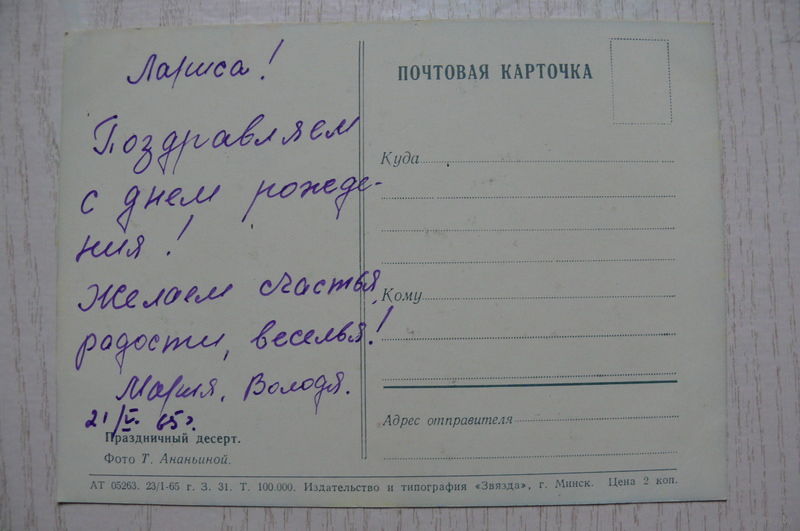 Лариса!
Поздравляем
с днем рожде-
ния!
Желаем счастья,
радости, веселья!
Мария, Володя.
21/V. 65г.
Праздничный десерт.
Фото Т. Ананьиной.
ПОЧТОВАЯ КАРТОЧКА
Куда
Кому
Адрес отправителя
АТ 05263. 23/I-65 г. З. 31. Т. 100.000. Издательство и типография «Звязда», г. Минск. Цена 2 коп.